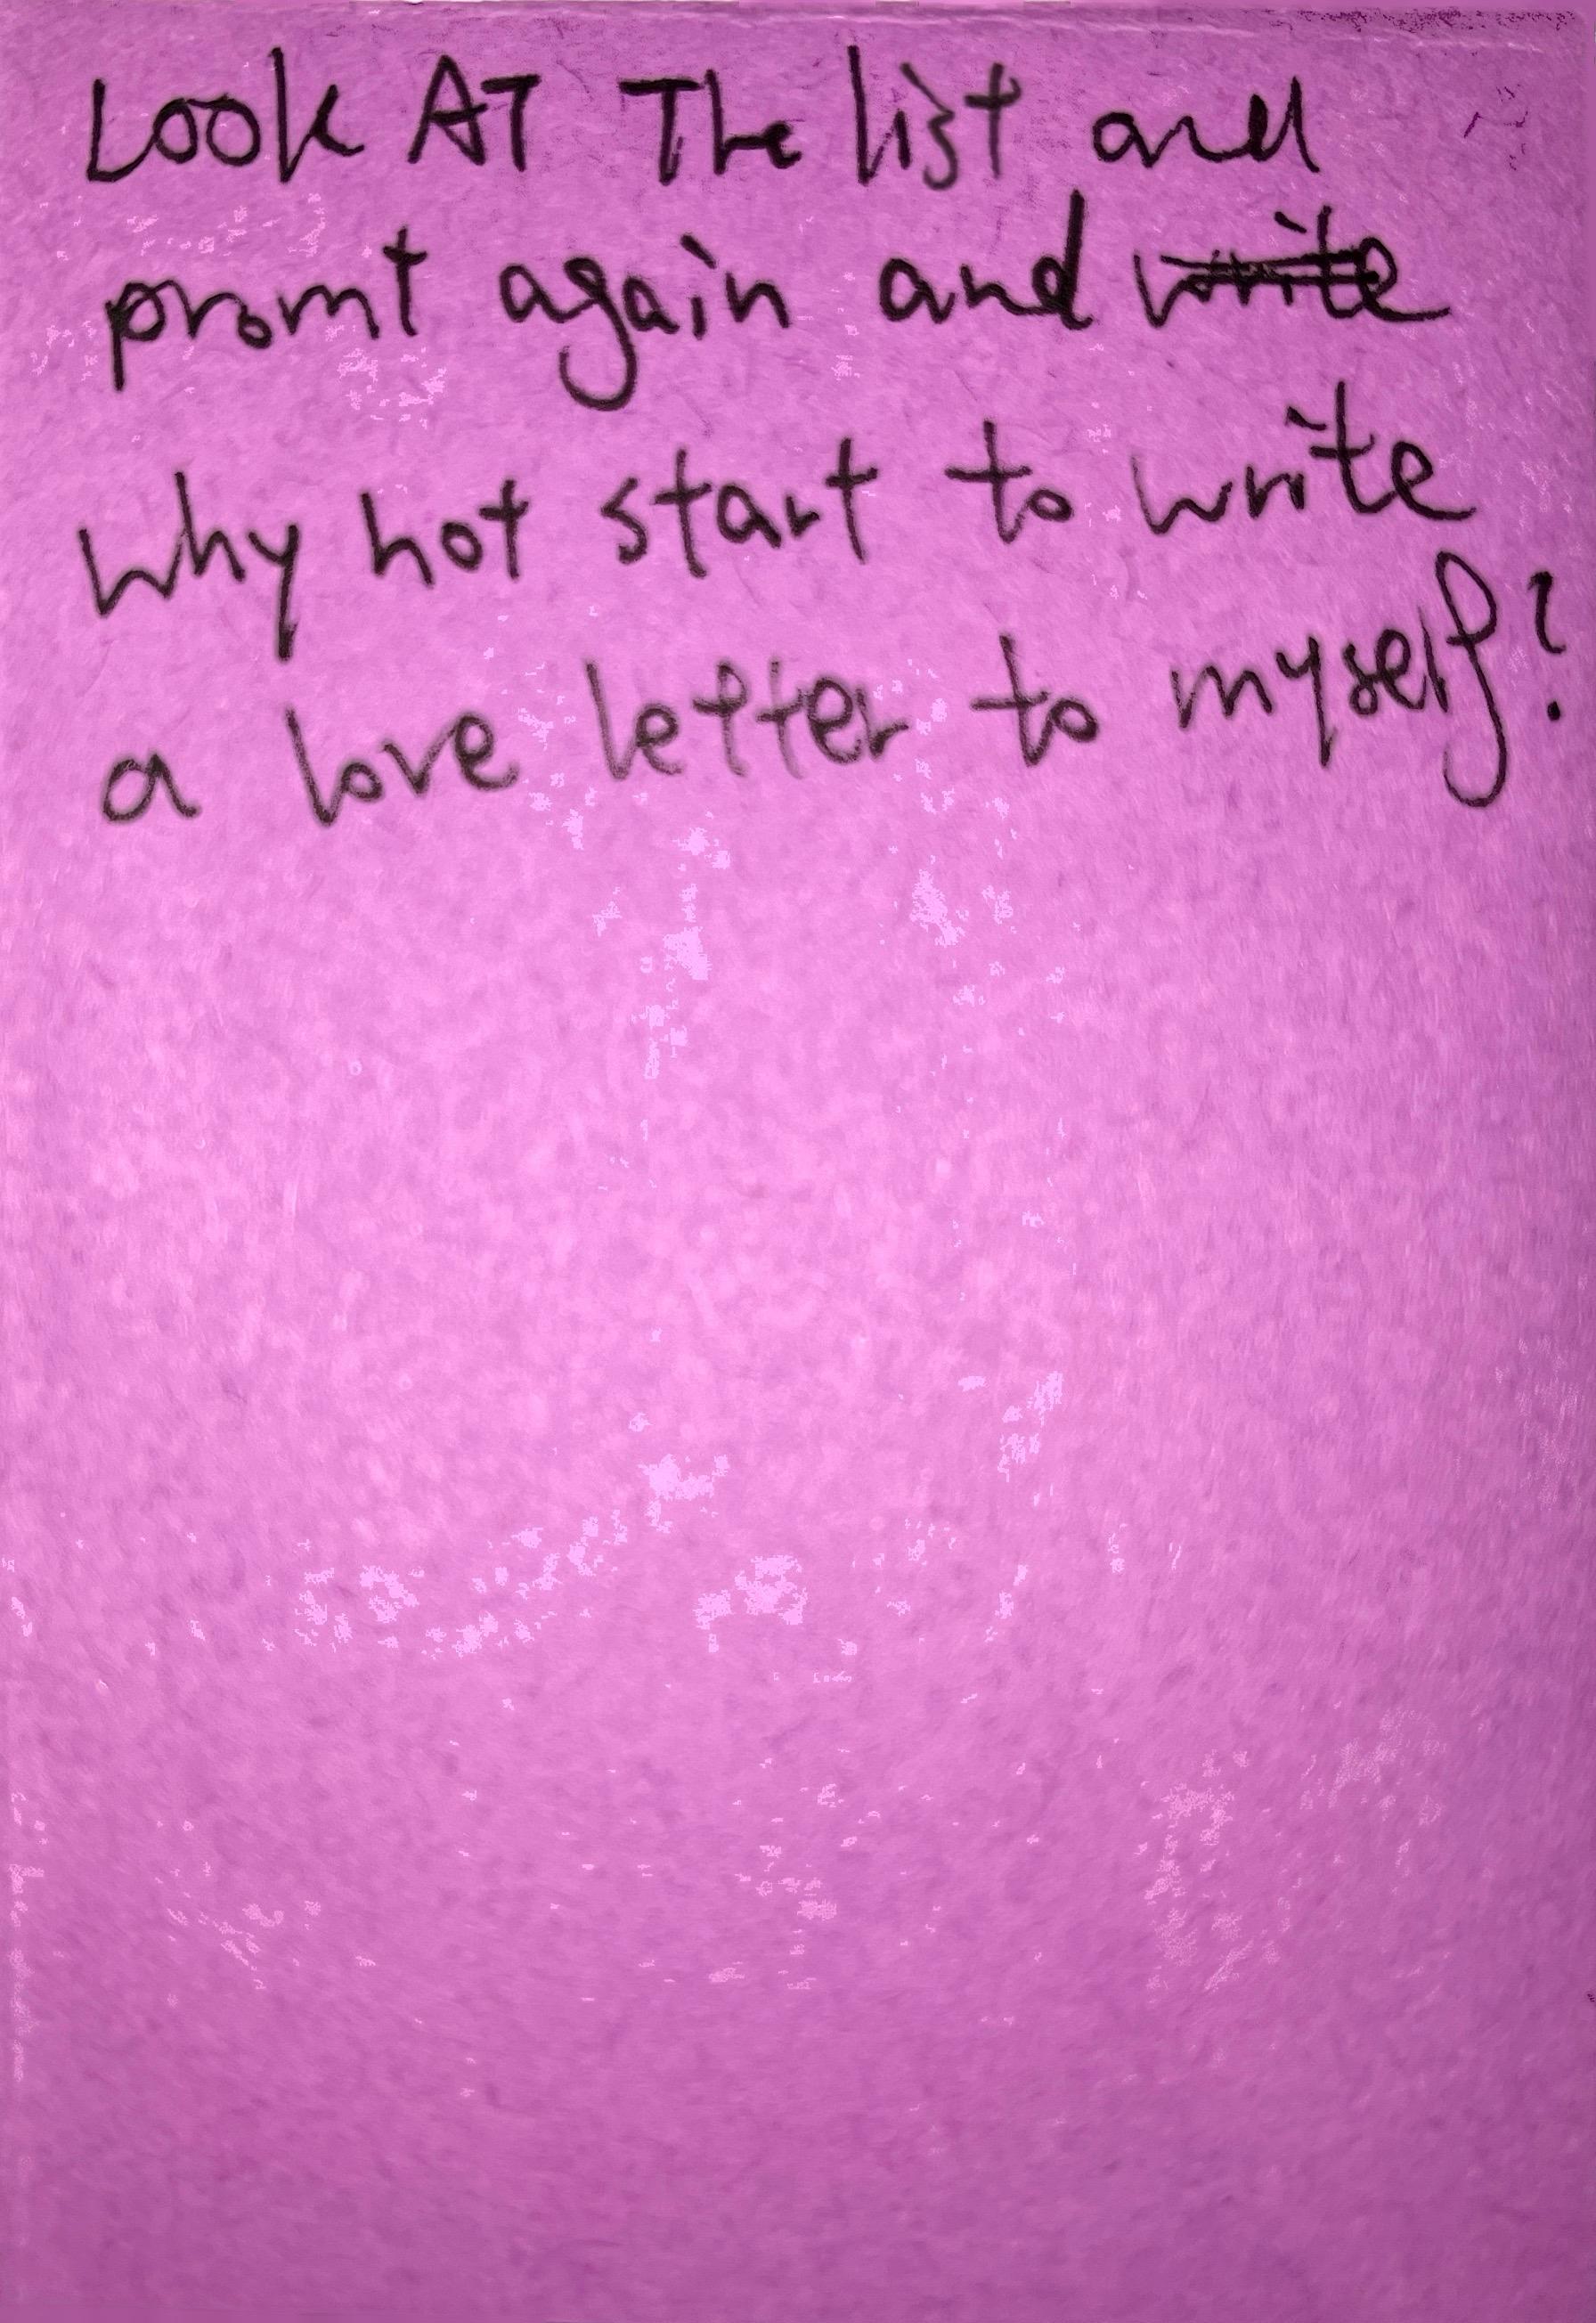 Look AT The list and
promt again and write
why not start to write
a love letter to myself?